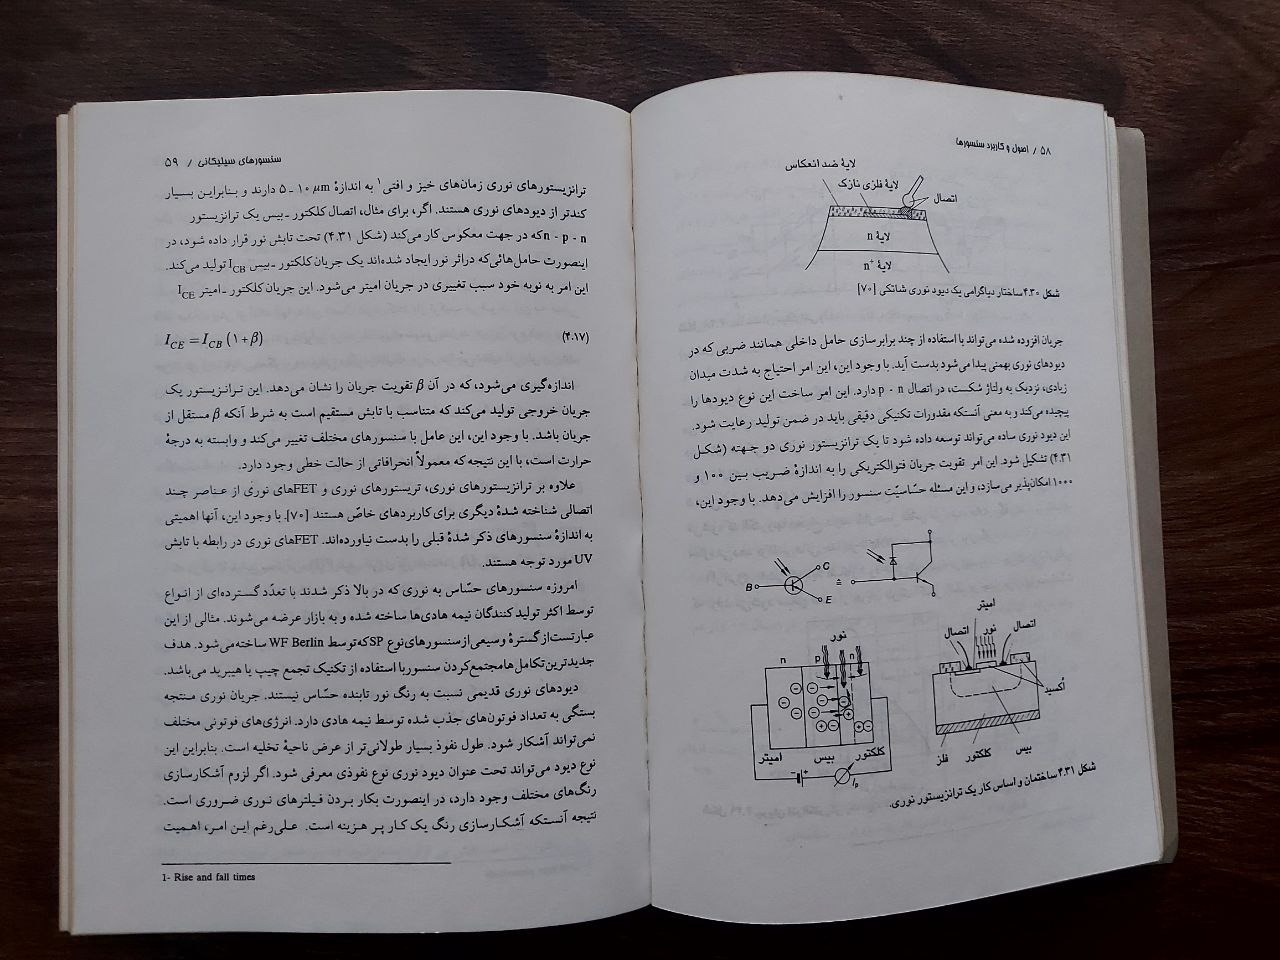 ۵۸ / اصول و کاربرد سنسورها
لایهٔ ضد انعکاس
لایهٔ فلزی نازک
اتصال
لایهٔ n
لایهٔ n+
شکل ۴.۳۰ ساختار دیاگرامی یک دیود نوری شاتکی [۷۰]
جریان افزوده شده می‌تواند با استفاده از چند برابرسازی حامل داخلی همانند ضربی که در
دیودهای نوری بهمنی پیدا می‌شود بدست آید. با وجود این، این امر احتیاج به شدت میدان
زیادی، نزدیک به ولتاژ شکست، در اتصال p - n دارد. این امر ساخت این نوع دیودها را
پیچیده می‌کند و به معنی آنستکه مقدورات تکنیکی دقیقی باید در ضمن تولید رعایت شود.
این دیود نوری ساده می‌تواند توسعه داده شود تا یک ترانزیستور نوری دو جهته (شکل
۴.۳۱) تشکیل شود. این امر تقویت جریان فتوالکتریکی را به اندازهٔ ضریب بین ۱۰۰ و
۱۰۰۰ امکان‌پذیر می‌سازد، و این مسئله حسّاسیّت سنسور را افزایش می‌دهد. با وجود این،
B
C
E
≙
نور
n
p
n
امیتر
بیس
کلکتور
− +
Ip
امیتر
اتصال
نور
اتصال
اُکسید
فلز
کلکتور
بیس
شکل ۴.۳۱ ساختمان و اساس کار یک ترانزیستور نوری.
سنسورهای سیلیکانی / ۵۹
ترانزیستورهای نوری زمان‌های خیز و افتی۱ به اندازهٔ ۵ - ۱۰ μm دارند و بنابراین بسیار
کندتر از دیودهای نوری هستند. اگر، برای مثال، اتصال کلکتور - بیس یک ترانزیستور
n - p - n که در جهت معکوس کار می‌کند (شکل ۴.۳۱) تحت تابش نور قرار داده شود، در
اینصورت حامل‌هائی‌که دراثر نور ایجاد شده‌اند یک جریان کلکتور - بیس ICB تولید می‌کند.
این امر به نوبه خود سبب تغییری در جریان امیتر می‌شود. این جریان کلکتور - امیتر ICE
ICE = ICB (1+β) (۴.۱۷)
اندازه‌گیری می‌شود، که در آن β تقویت جریان را نشان می‌دهد. این ترانزیستور یک
جریان خروجی تولید می‌کند که متناسب با تابش مستقیم است به شرط آنکه β مستقل از
جریان باشد. با وجود این، این عامل با سنسورهای مختلف تغییر می‌کند و وابسته به درجهٔ
حرارت است، با این نتیجه که معمولاً انحرافاتی از حالت خطی وجود دارد.
علاوه بر ترانزیستورهای نوری، تریستورهای نوری و FETهای نوری از عناصر چند
اتصالی شناخته شدهٔ دیگری برای کاربردهای خاصّ هستند [۷۰]. با وجود این، آنها اهمیتی
به اندازهٔ سنسورهای ذکر شدهٔ قبلی را بدست نیاورده‌اند. FETهای نوری در رابطه با تابش
UV مورد توجه هستند.
امروزه سنسورهای حسّاس به نوری که در بالا ذکر شدند با تعدّد گسترده‌ای از انواع
توسط اکثر تولید کنندگان نیمه هادی‌ها ساخته شده و به بازار عرضه می‌شوند. مثالی از این
عبارتست‌از گسترهٔ وسیعی از سنسورهای نوع SP که توسط WF Berlin ساخته می‌شود. هدف
جدیدترین تکامل‌ها مجتمع کردن سنسور با استفاده از تکنیک تجمع چیپ یا هیبرید می‌باشد.
دیودهای نوری قدیمی نسبت به رنگ نور تابنده حسّاس نیستند. جریان نوری منتجه
بستگی به تعداد فوتون‌های جذب شده توسط نیمه هادی دارد. انرژی‌های فوتونی مختلف
نمی‌تواند آشکار شود. طول نفوذ بسیار طولانی‌تر از عرض ناحیهٔ تخلیه است. بنابراین این
نوع دیود می‌تواند تحت عنوان دیود نوری نوع نفوذی معرفی شود. اگر لزوم آشکارسازی
رنگ‌های مختلف وجود دارد، در اینصورت بکار بردن فیلترهای نوری ضروری است.
نتیجه آنستکه آشکارسازی رنگ یک کار پر هزینه است. علی‌رغم این امر، اهمیت
1- Rise and fall times